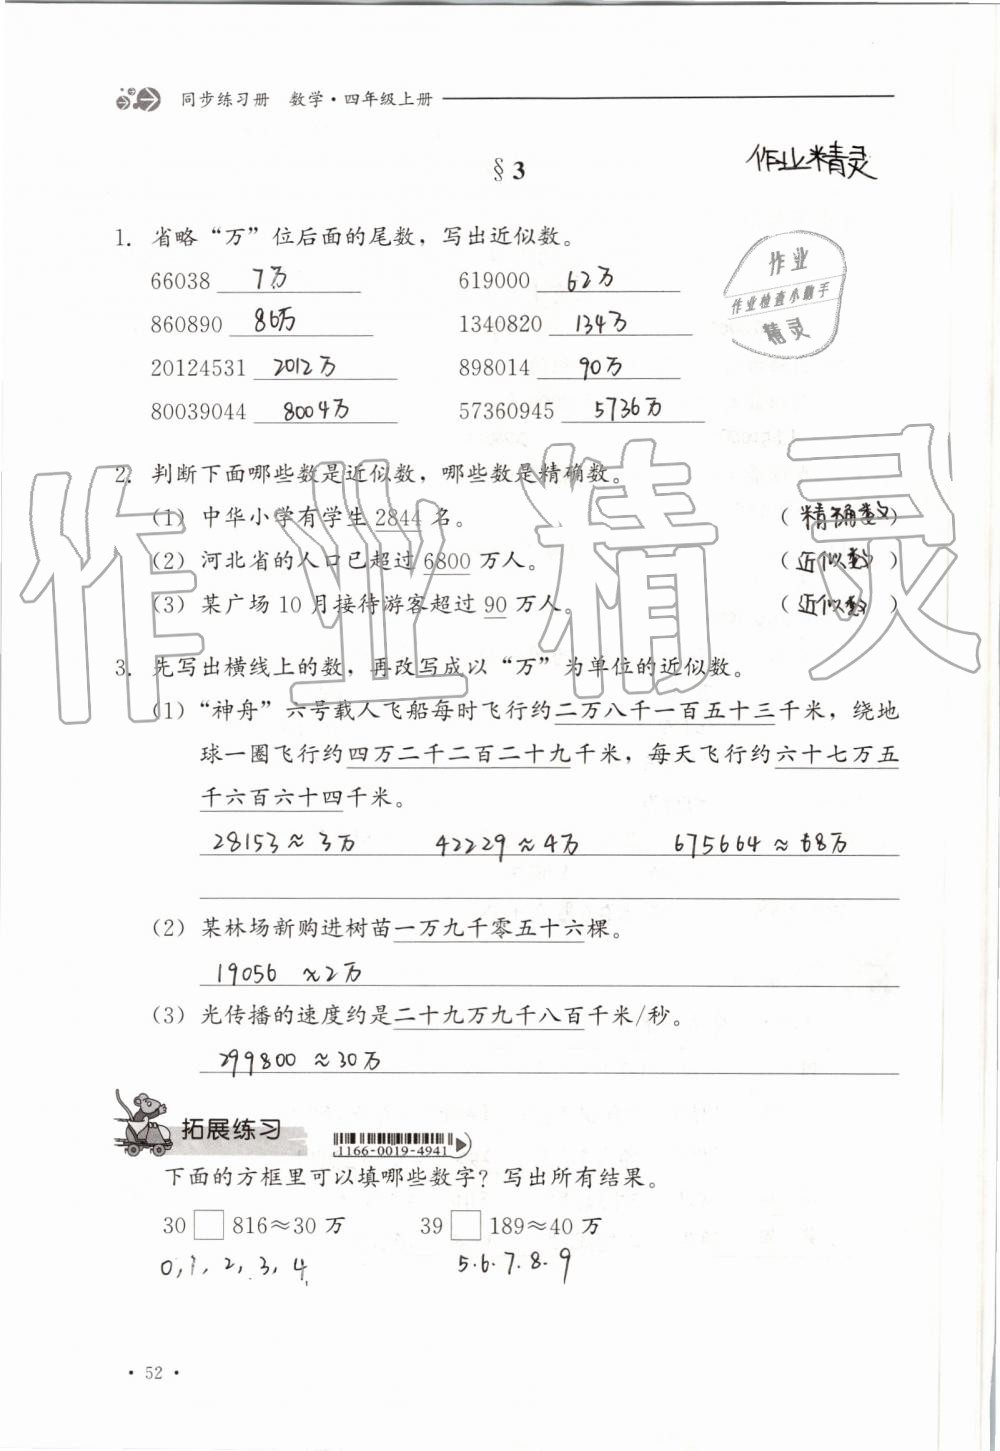 同步练习册 数学·四年级上册
§3
作业精灵
1. 省略“万”位后面的尾数，写出近似数。
66038 7万 619000 62万
860890 86万 1340820 134万
20124531 2012万 898014 90万
80039044 8004万 57360945 5736万
作业
作业检查小助手
精灵
作业精灵
2. 判断下面哪些数是近似数，哪些数是精确数。
(1) 中华小学有学生 2844 名。 (精确数)
(2) 河北省的人口已超过 6800 万人。 (近似数)
(3) 某广场 10 月接待游客超过 90 万人。 (近似数)
3. 先写出横线上的数，再改写成以“万”为单位的近似数。
(1) “神舟”六号载人飞船每时飞行约二万八千一百五十三千米，绕地
球一圈飞行约四万二千二百二十九千米，每天飞行约六十七万五
千六百六十四千米。
28153≈3万 42229≈4万 675664≈68万
(2) 某林场新购进树苗一万九千零五十六棵。
19056 ≈2万
(3) 光传播的速度约是二十九万九千八百千米/秒。
299800 ≈30万
拓展练习
1166-0019-4941
下面的方框里可以填哪些数字？写出所有结果。
30□816≈30 万 39□189≈40 万
0,1,2,3,4 5.6.7.8.9
·52·